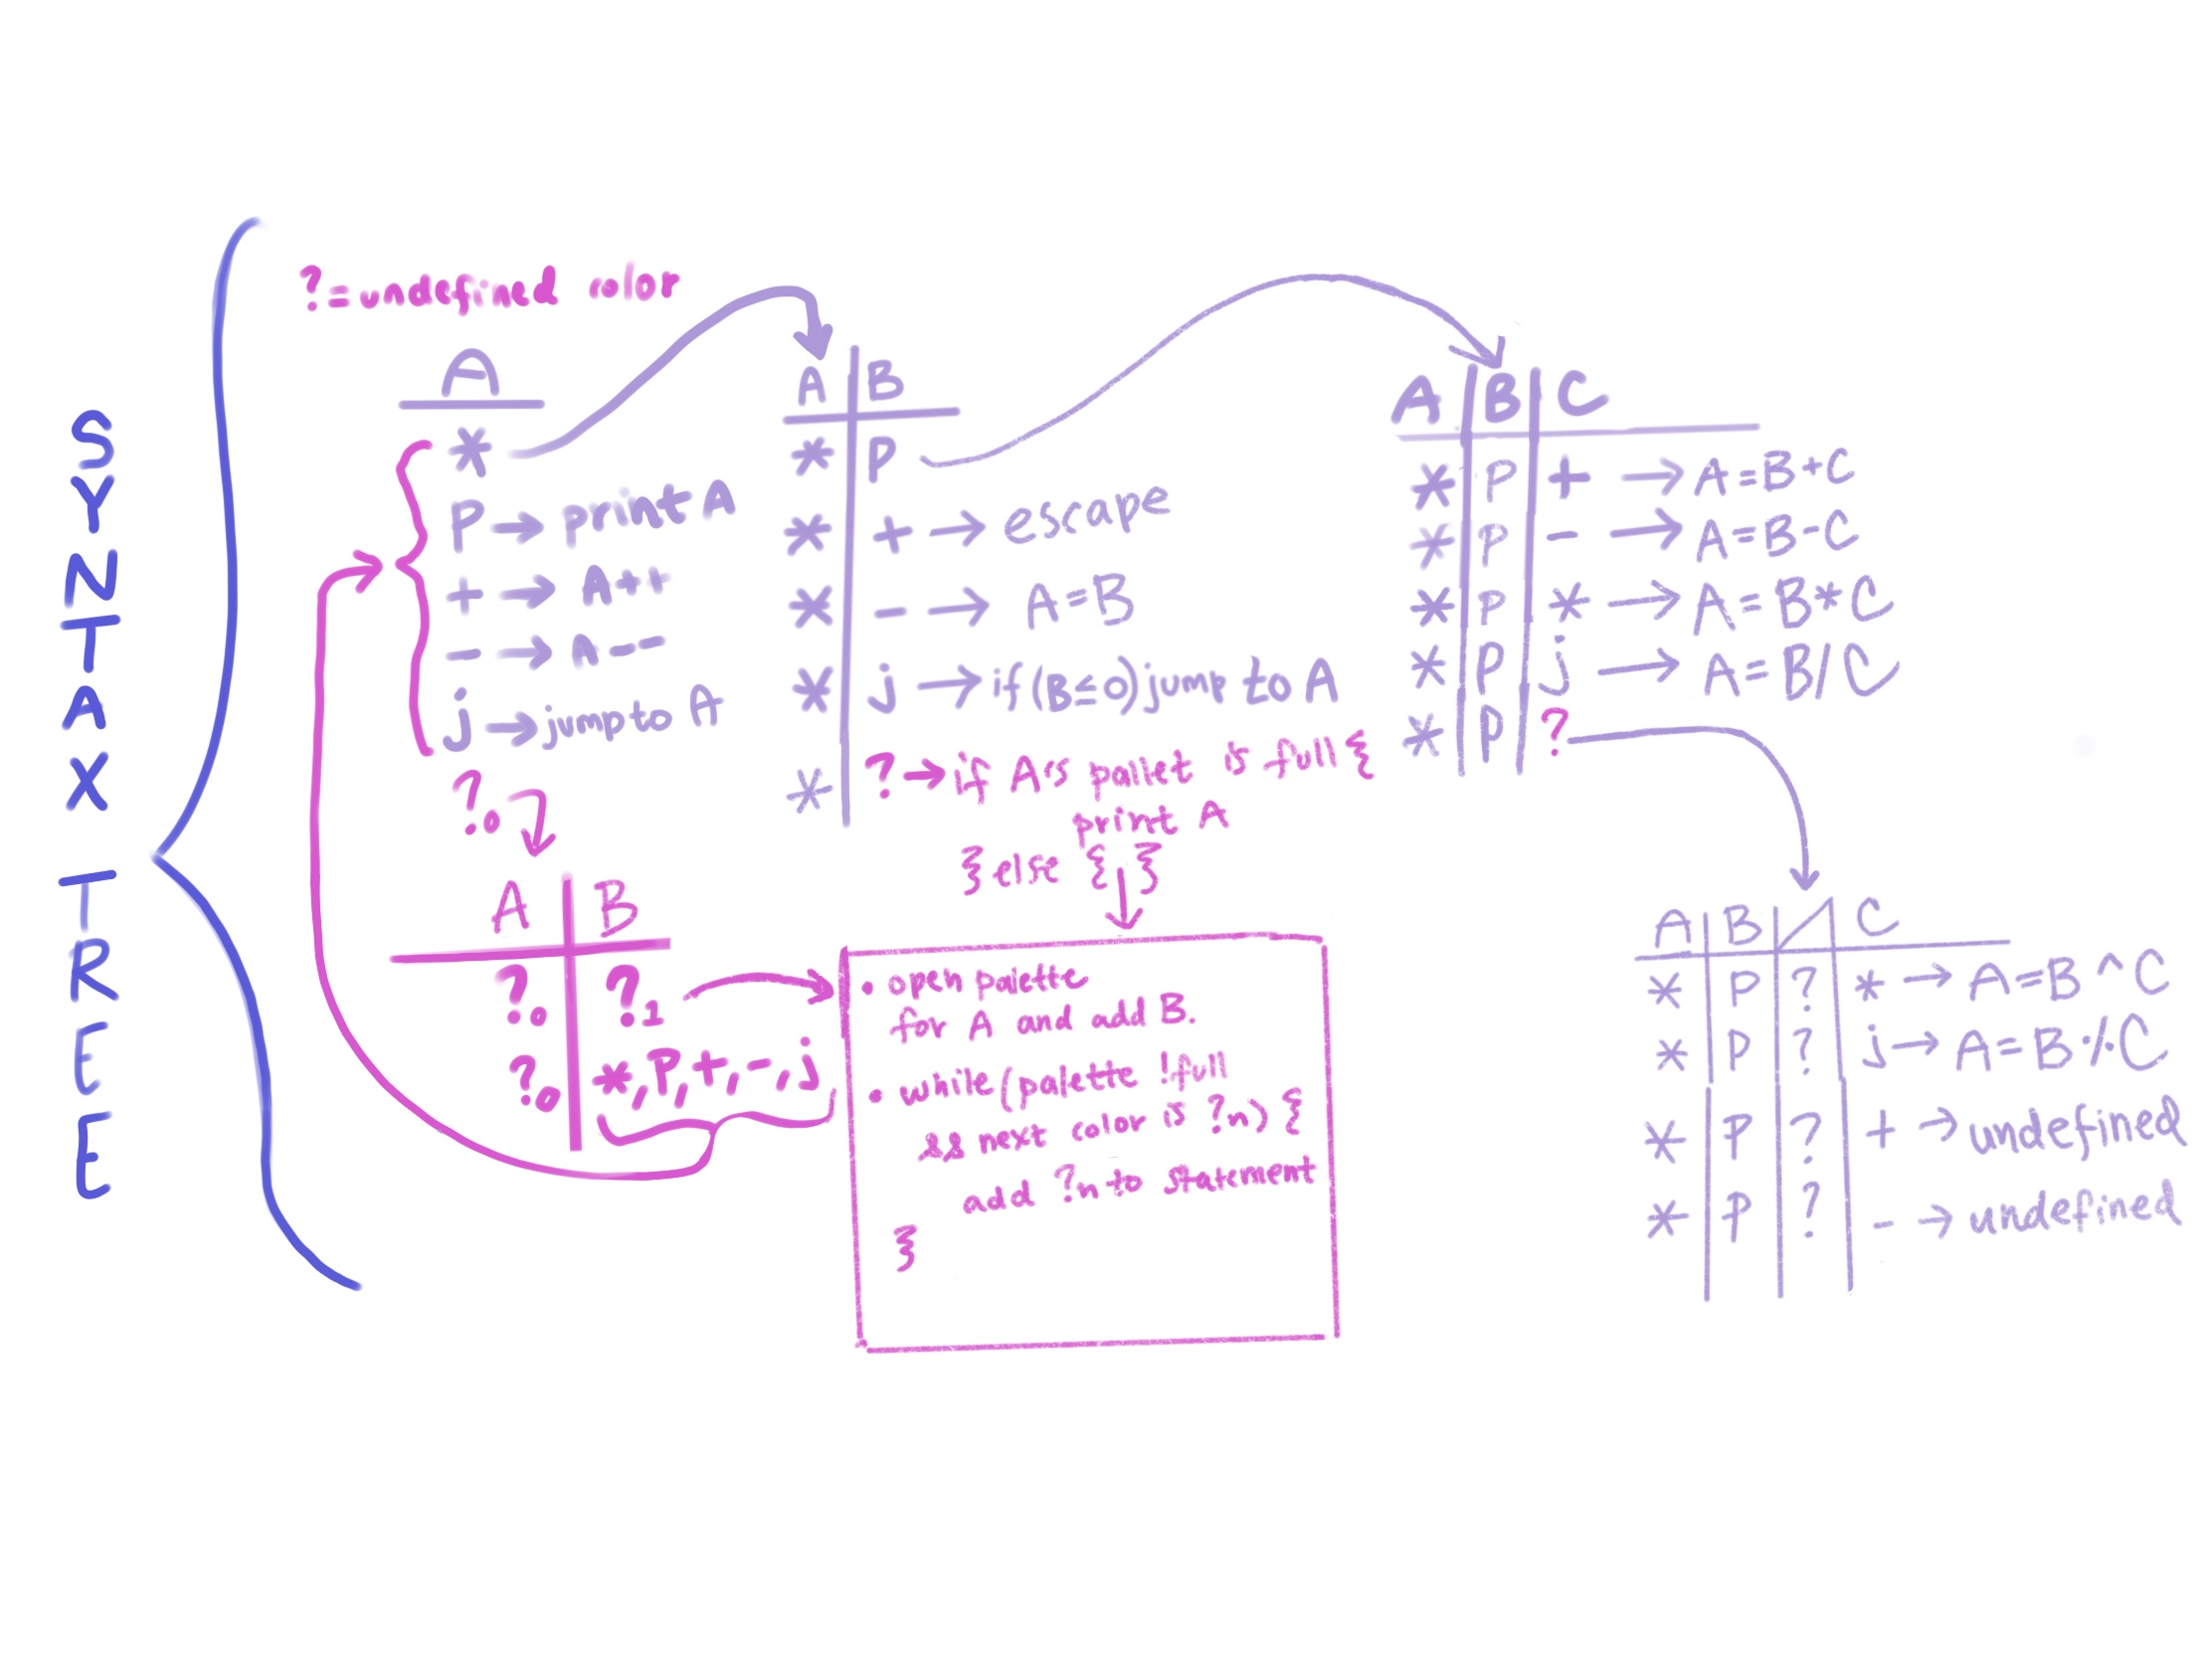 SYNTAX TREE
?=undefined color
A
*
P → print A
+ → A++
- → A--
j → jump to A
?0
A | B
?0 | ?1
?0 | *, P, +, -, j
A | B
* | P
* | + → escape
* | - → A=B
* | j → if(B≤0)jump to A
* | ? → if A's pallet is full {
print A
} else { }
• open palette
for A and add B.
• while(palette !full
&& next color is ?n) {
add ?n to statement
}
A | B | C
* | P | + → A=B+C
* | P | - → A=B-C
* | P | * → A=B*C
* | P | j → A=B/C
* | P | ?
A | B | C
* | P | ? | * → A=B^C
* | P | ? | j → A=B%C
* | P | ? | + → undefined
* | P | ? | - → undefined